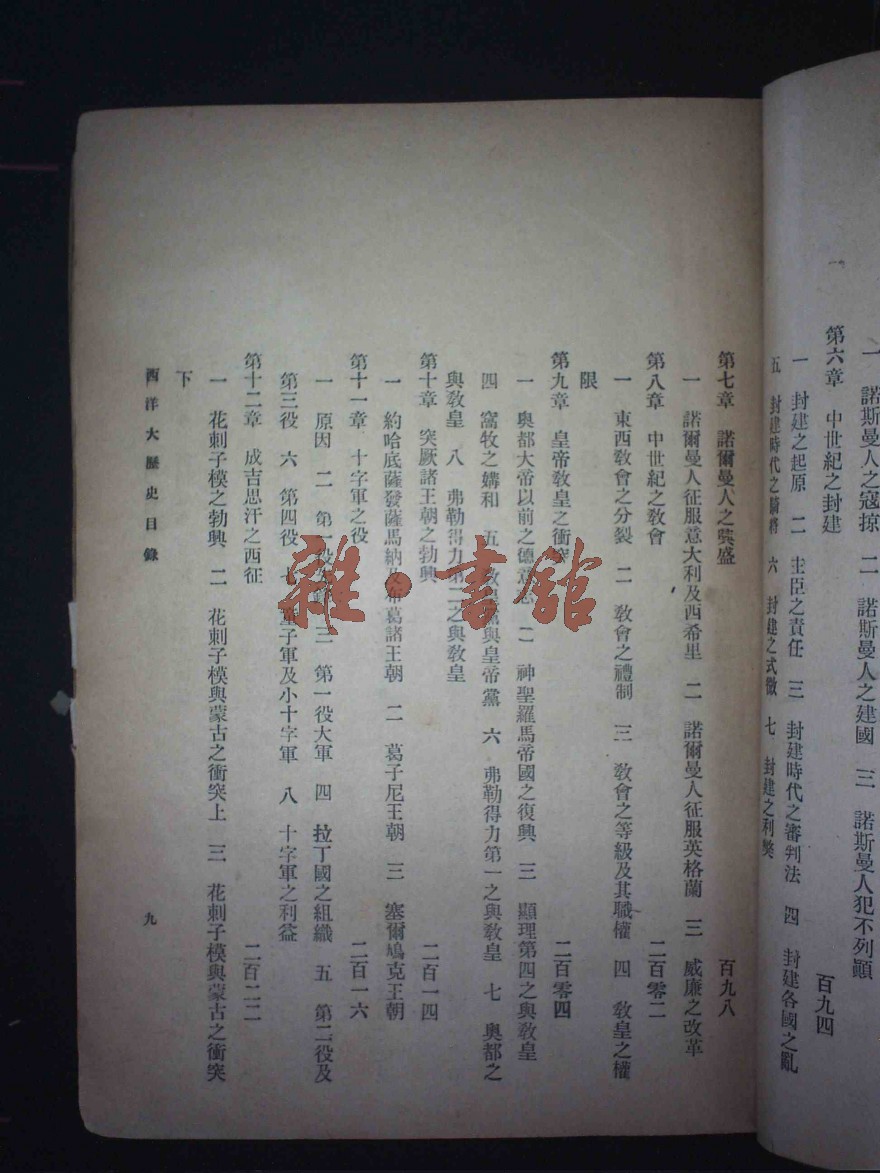 一　諾斯曼人之寇掠　二　諾斯曼人之建國　三　諾斯曼人犯不列顚
第六章　中世紀之封建　百九四
一　封建之起原　二　主臣之責任　三　封建時代之審判法　四　封建各國之亂
五　封建時代之騎將　六　封建之式微　七　封建之利獘
第七章　諾爾曼人之興盛　百九八
一　諾爾曼人征服意大利及西希里　二　諾爾曼人征服英格蘭　三　威廉之改革
第八章　中世紀之敎會　二百零二
一　東西敎會之分裂　二　敎會之禮制　三　敎會之等級及其職權　四　敎皇之權
限
第九章　皇帝敎皇之衝突　二百零四
一　奧都大帝以前之德意志　二　神聖羅馬帝國之復興　三　顯理第四之與敎皇
四　窩牧之媾和　五　敎皇黨與皇帝黨　六　弗勒得力第一之與敎皇　七　奧都之
與敎皇　八　弗勒得力第二之與敎皇
第十章　突厥諸王朝之勃興　二百一四
一　約哈底薩發薩馬納及布葛諸王朝　二　葛子尼王朝　三　塞爾鳩克王朝
第十一章　十字軍之役　二百一六
一　原因　二　第一役先鋒　三　第一役大軍　四　拉丁國之組織　五　第二役及
第三役　六　第四役　七　童子軍及小十字軍　八　十字軍之利益
第十二章　成吉思汗之西征　二百二二
一　花剌子模之勃興　二　花剌子模與蒙古之衝突上　三　花剌子模與蒙古之衝突
下
西洋大歷史目錄　九
雜·書館